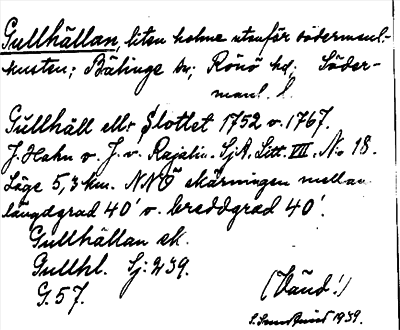 Gullhällan, liten holme utanför södermanl.-
kusten; Bälinge sn; Rönö hd; Söder-
manl. l.
Gŭllhäll ellr Slottet 1752 o. 1767.
J. Hahn o. J. v. Rajalin. SjA. Litt. VII. No 18.
Läge 5,3 km. NNÖ skärningen mellan
längdgrad 40' o. breddgrad 40'.
Gullhällan ek.
Gullhl. Sj: 239.
G. 57.
(Vänd!)
1939.